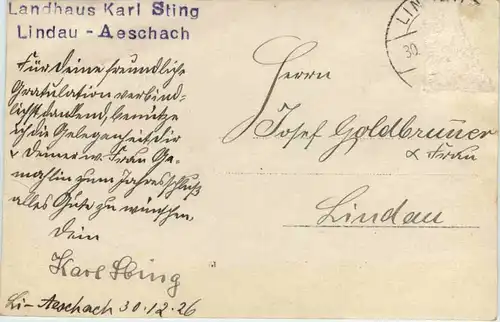 Landhaus Karl Sting
Lindau - Aeschach
Für Deine freundliche
Gratulation verbind-
lichst dankend, benütze
ich die Gelegenheit, Dir
& Deiner w. Frau Ge-
mahlin zum Jahresschluß
alles Gute zu wünschen.
Dein
Karl Sting
Li-Aeschach 30.12.26
LIN
30.
Herrn
Josef Goldbrunner
& Frau
Lindau